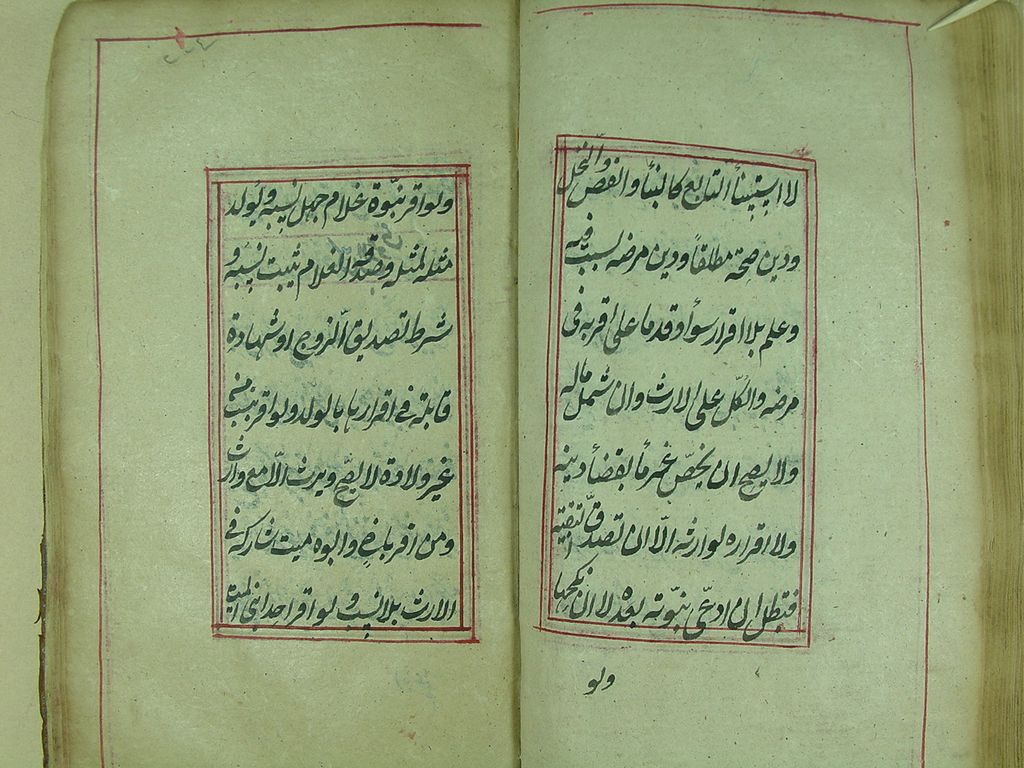 لا استثناء التابع كالبناء والفص والنخل
ودين صحته مطلقاً ودين مرضه لسبب فيه
وعلم بلا اقرار سوأ وقدما على اقربه فى
مرضه والكلّ على الارث وان شمل ماله
ولا يصح ان يخصّ غرمأ بقضأ دينه
ولا اقراره لوارثه الّا ان تصدق البقية
فتبطل ان ادعى بنوّته بعده لا ان نكحها
ولو
ولو اقر ببنوّة غلام جهل نسبه ويولد
مثله لمثله وصدقه الغلام يثبت نسبه و
شرط تصديق الزوج او شهادة
قابلة فى اقرارها بالولد ولو اقر بنسب من
غير ولادة لا يصح ويرث الّا مع وارث
ومن اقر باخ وابوه ميت شاركه فى
الارث بلا نسب ولو اقر احد ابنى الميت